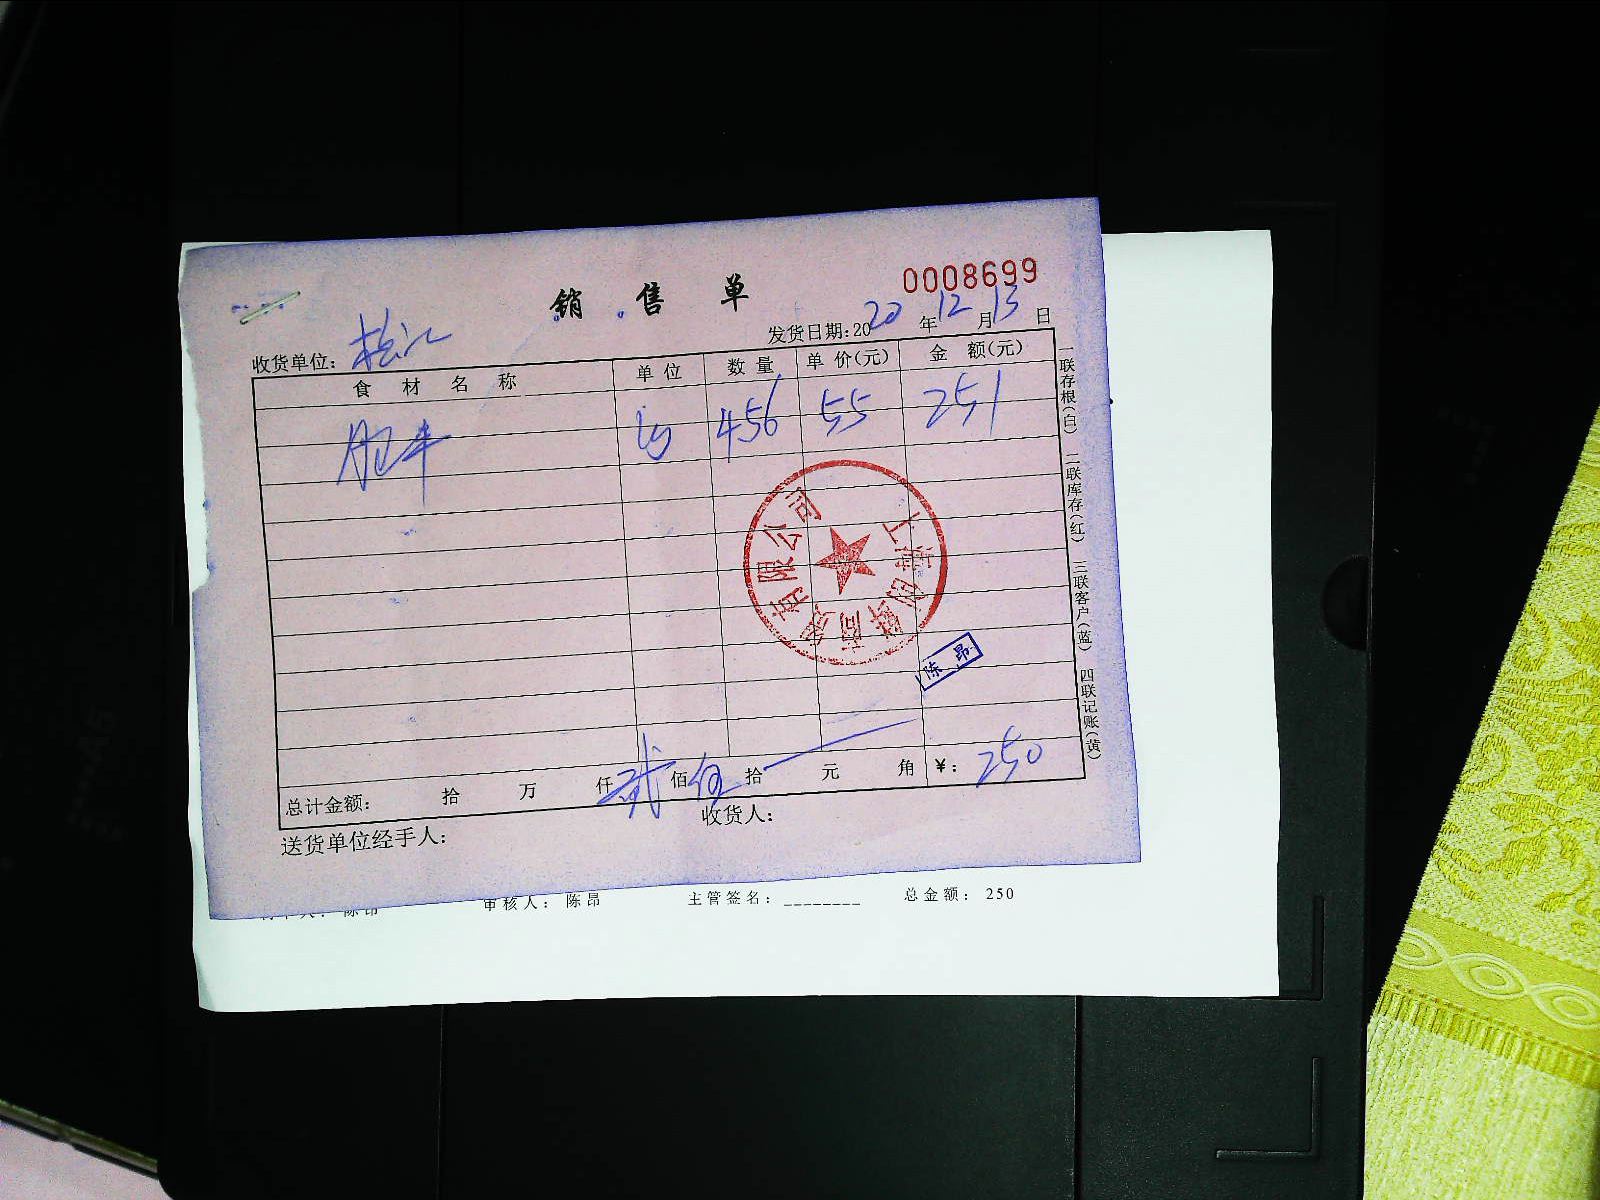 销售单
0008699
收货单位: 松江
发货日期:2020年12月13日
食材名称 单位 数量 单价(元) 金额(元)
456 55 251
上海创赣商贸有限公司
陈昂
总计金额: 拾 万 仟 贰 佰 伍 拾 元 角 ¥: 250
送货单位经手人: 收货人:
一联存根(白) 二联库存(红) 三联客户(蓝) 四联记账(黄)
审核人: 陈昂 主管签名: ________ 总金额: 250